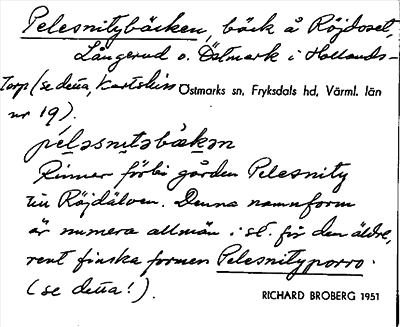 Pelesnitybäcken, bäck å Röjdoset,
Långerud o. Östmark i Hollands-
Torp (se detta, kartskiss Östmarks sn, Fryksdals hd, Värml. län
nr 19).
pélǝsnıtǝbàkǝn
Rinner förbi gården Pelesnity
till Röjdälven. Denna namnform
är numera allmän i st. för den äldre,
rent finska formen Pelesnityporro.
(se detta!).
RICHARD BROBERG 1951